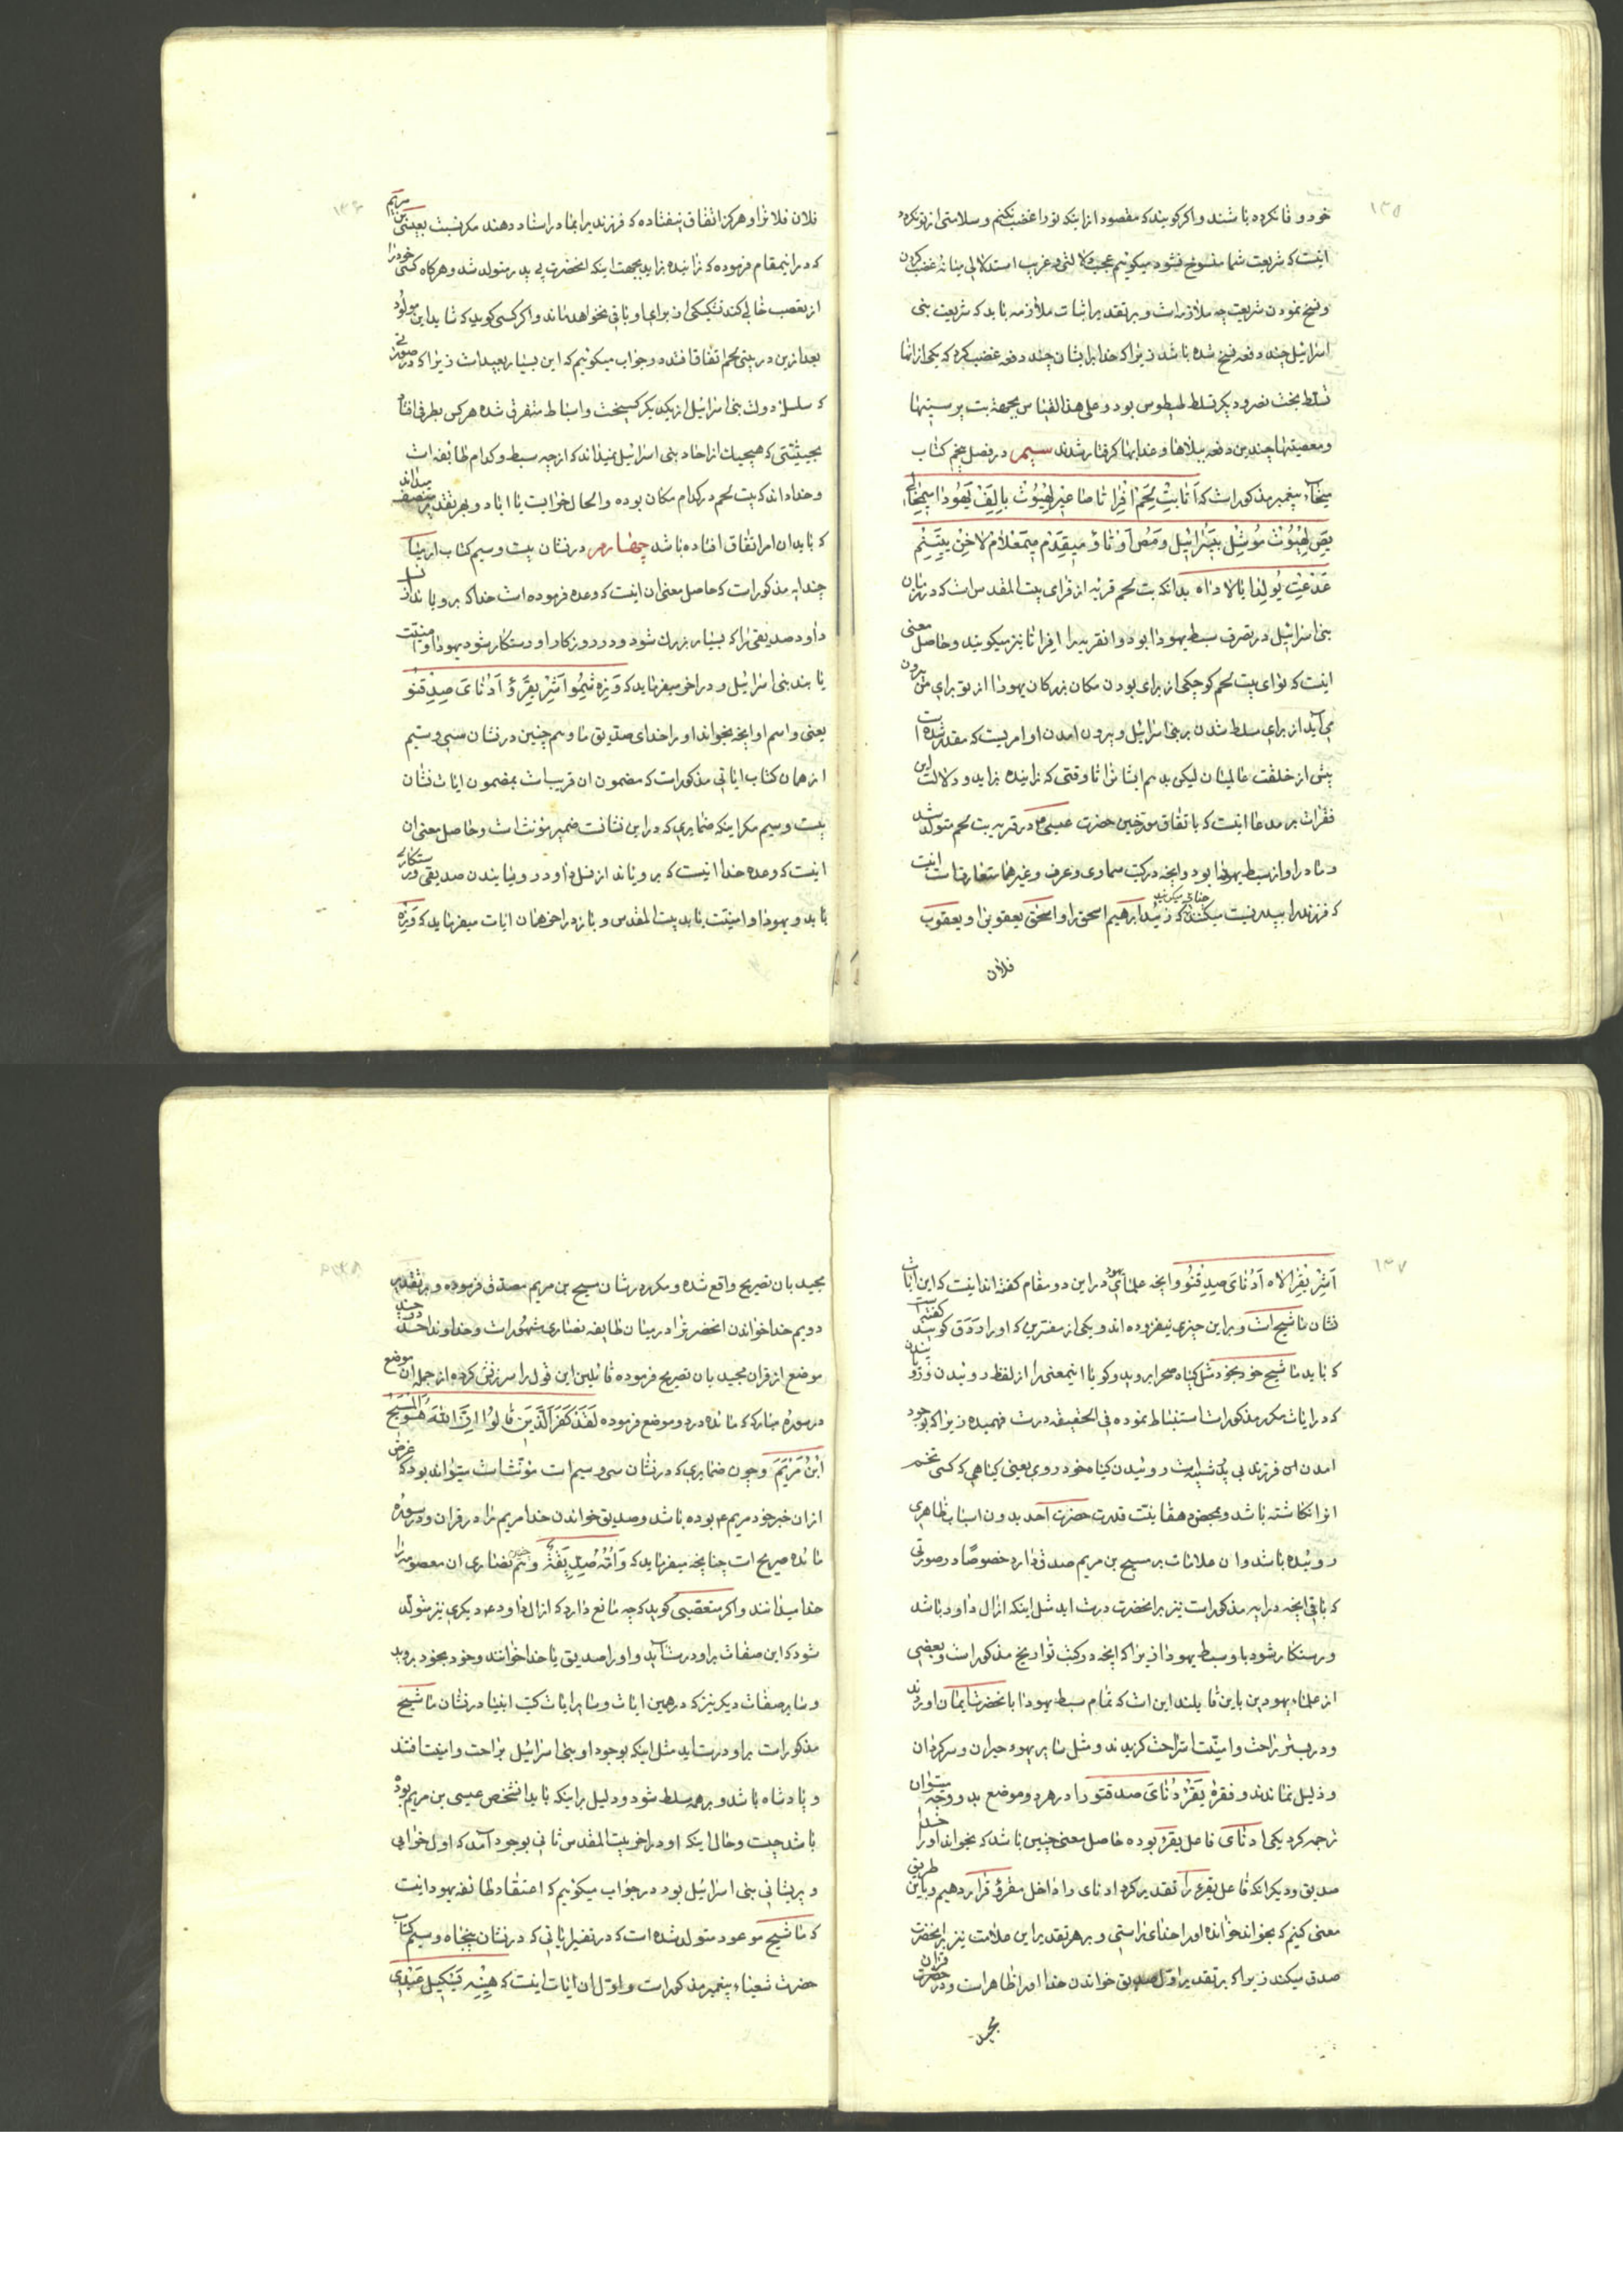 ۱۳۵
خود وفا نکرده باشند و اکر کویند که مقصود از اینکه تو را غضب نکنم و سلامتی از تو نکرد
اینست که شریعت شما منسوخ نشود میکوئیم عجب دلالتی و غریب استدلالی میانه غضب کردن
و نسخ نمودن شریعت چه ملازمه است و بر تقدیر اثبات ملازمه باید که شریعت بنی
اسرائیل چند دفعه نسخ شده باشد زیرا که خدا بر ایشان چند دفعه غضب کرد که یکی از انها
تسلط بخت نصر و دیکر تسلط طیطوس بود و علی هذا القیاس بجهة بت پرستیها
و معصیتها چندین دفعه ببلاها و عذابها کرفتار شدند سیم در فصل پنجم کتاب
میخآء پیغمبر مذکور است که اَتا بیْت لِحَم اِفراثا صاعیر لِهیُوْث بِاَلِفِ یَهُودا مِمِخا لی
یِصِ لِهْیُوْث مُوشِل بیسْرائیل وِمُصاوُثاو میقِدِم میمِعُلام لاخِن یِتِنِم
عَدْعِت یُولِدا یالادْاه بدانکه بیت لحم قریه از قرای بیت المقدس است که در زمان
بنی اسرائیل در تصرف سبط یهودا بود و انقریه را افراثا نیز میکویند و حاصل معنی
اینست که تو ای بیت لحم کوچکی از برای بودن مکان بزرکان یهودا از تو برای من بیرون
می آید از برای مسلط شدن بر بنی اسرائیل و بیرون امدن او امریست که مقدر شده است
پیش از خلقت عالمیان لیکن بدهم ایشانرا تا وقتی که زاینده بزاید و دلالت این
فقرات بر مدعا اینست که باتفاق مورخین حضرت عیسی ع در قریه بیت لحم متولد شد
و مادر او از سبط یهودا بود و انچه در کتب سماوی و عرف و غیرهما متعارفست اینست
که فرزند را بپدر نسبت میکنند چنانچه میکویند که زائید ابرهیم اسحق را و اسحق یعقوبرا و یعقوب
فلان
۱۳۶
فلان فلانرا و هرکز اتفاق نیفتاده که فرزند را بمادر اسناد دهند مکر نسبت بعیسی بن مریم
که در اینمقام فرموده که زاینده بزاید بجهت اینکه انحضرت بی پدر متولد شد و هر کاه کسی خود را
از تعصب خالی کند تشکیکی از برای او باقی نخواهد ماند و اکر کسی کوید که شاید این مولود
بعد ازین در بیت لحم اتفاق افتد در جواب میکوئیم که این بسیار بعید است زیرا که در صورتی
که سلسله دولت بنی اسرائیل از یکدیکر کسیخت و اسباط متفرق شده هر کس بطرفی افتاد
بحیثیتی که هیچیک از احاد بنی اسرائیل نمیداند که از چه سبط و کدام طایفه است
و خدا داند که بیت لحم در کدام مکان بوده و الحال خرابست یا اباد و بهر تقدیر منصف میداند
که باید ان امر اتفاق افتاده باشد چهارم در نشان بیست و سیم کتاب ارمیا
چند ایه مذکور است که حاصل معنی ان اینست که وعده فرموده است خدا که برویاند از نسل
داود صدیقی را که بسیار بزرک شود و در روزکار او رستکار شود یهودا و امنیت
یابند بنی اسرائیل و در اخر میفرماید که وِزِه شِمُو اَشِر یِقرِؤ اَدُنای صِدِقنو
یعنی و اسم او انچه بخواند او را خدای صدیق ما و هم چنین در نشان سی و سیم
از همان کتاب ایاتی مذکور است که مضمون ان قریبست بمضمون ایات نشان
بیست و سیم مکر اینکه ضمایری که در این نشانست ضمیر مؤنث است و حاصل معنی ان
اینست که وعده خدا انیست که برویاند از نسل داود روینا بندن صدیقی و رستکاری
یابد و یهودا و امنیت یابد بیت المقدس و باز در اخر همان ایات میفرماید که وِزِه
۱۳۷
اَشِر یِقرِا لاه اَدُنای صِدِقِنُو و انچه علمای یهود در این دو مقام کفته اند اینست که این ایات
نشان ماشیح است و بر این چیزی نیفزوده اند و یکی از مفسرین که او را رَدَق کویند کفته است
که باید ماشیح خود بخود مثل کیاه صحرا بروید و کویا اینمعنی را از لفظ روئیدن
که در ایات مکرر مذکور است استنباط نموده فی الحقیقه درست فهمیده زیرا که بوجود
امدن این فرزند بی پدر شبیه است روئیدن کیاه خود روی یعنی کیاهی که کسی تخم
انرا نکاشته باشد و بمحض مشیت قدرت حضرت احد بدون اسباب ظاهری
روئیده باشد و ان علامات بر مسیح بن مریم صدق دارد خصوصًا در صورتی
که باقی انچه در ایه مذکور است نیز بر انحضرت درست اید مثل اینکه از ال داود باشد
و رستکار شود باو سبط یهودا زیرا که انچه در کتب تواریخ مذکور است و بعضی
از علماء یهود بن باین قایلند این است که تمام سبط یهودا بانحضرت ایمان اوردند
و در بستر راحت و امنیت استراحت کزیدند و مثل سایر یهود حیران و سرکردان
و ذلیل نماندند و فقرهٔ یَقرِء دُنای صدقنو را در هر دو موضع بدو وجه میتوان
ترجمه کرد یکی ادنای فاعل یقرء بوده حاصل معنی چنین باشد که بخواند او را خدا
صدیق و دیکر انکه فاعل یقرء را تقدیر کرد ادنای را داخل مقرؤ قرار دهیم و باین طریق
معنی کنیم که بخواند خواننده او را خدای راستی و بر هر تقدیر این علامت نیز بر انحضرت
صدق میکند زیرا که بر تقدیر اول صدیق خواندن خدا او را ظاهر است و در حضرت قران
مجید
مجید بان تصریح واقع شده و مکرر در شان مسیح بن مریم مصدق فرموده و بر تقدیر
دویم خدا خواندن انحضرترا در میان طایفه نصاری مشهور است و خداوند احد در چند
موضع از قران مجید بان تصریح فرموده قائلین این قول را سرزنش کرده از جمله ان موضع
در سورهٔ مبارکه مائده در دو موضع فرموده لَقَدْ کَفَرَ الَّذینَ قالُوا اِنَّ اللّهَ هُوَ الْمَسیحُ
ابْنُ مَرْیَمَ و چون ضمایری که در نشان سی و سیم است مؤنث است میتواند بود که غرض
از ان خبر خود مریم ع بوده باشد و صدیق خواندن خدا مریم را در قران و در سوره
مائده صریح است چنانچه میفرماید که وَ اُمُّهُ صِدّیقَةٌ و هم چنین نصاری ان معصومه را
خدا میدانند و اکر متعصبی کوید که چه مانع دارد که از ال داود ع دیکری نیز متولد
شود که این صفات بر او درست اید و او را صدیق یا خدا خوانند و خود بخود بروید
و سایر صفات دیکر نیز که در همین ایات و سایر ایات کتب انبیا در نشان ماشیح
مذکور است بر او درست اید مثل اینکه بوجود او بنی اسرائیل براحت و امنیت افتند
و پادشاه باشد و بر همه مسلط شود و دلیل بر اینکه باید انشخص عیسی بن مریم بوده
باشد چیست و حال اینکه او در اخر بیت المقدس ثانی بوجود آمد که اول خرابی
و پریشانی بنی اسرائیل بود در جواب میکوئیم که اعتقاد طائفه یهود اینست
که ماشیح موعود متولد شده است که در تفسیر ایاتی که در نشان پنجاه و سیم کتاب
حضرت شعیاء پیغمبر مذکور است و اول ان ایات اینست که هِینِه یَسْکیل عَبْدی